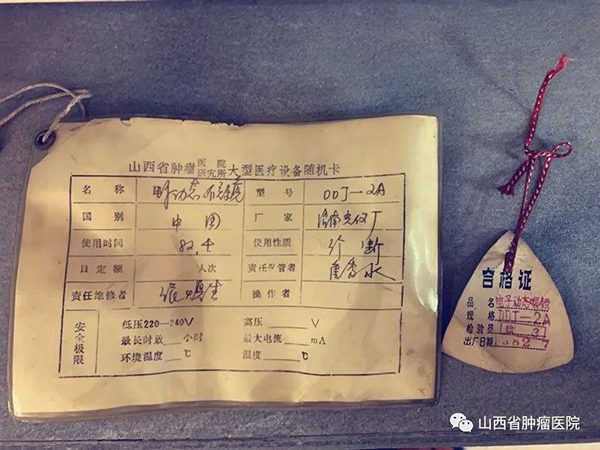 山西省肿瘤医院研究所大型医疗设备随机卡
名称 型号 DDJ—2A
国别 中国 厂家
使用时间 82.4 使用性质 诊断
日定额 人次 责任保管者
责任维修者 操作者
安全极限
低压220—240V 高压 V
最长时放 小时 最大电流 mA
环境温度 ℃ 湿度 ℃
合格证
品名 电子动态
规格 DDJ—2A
检验员
出厂日期
山西省肿瘤医院